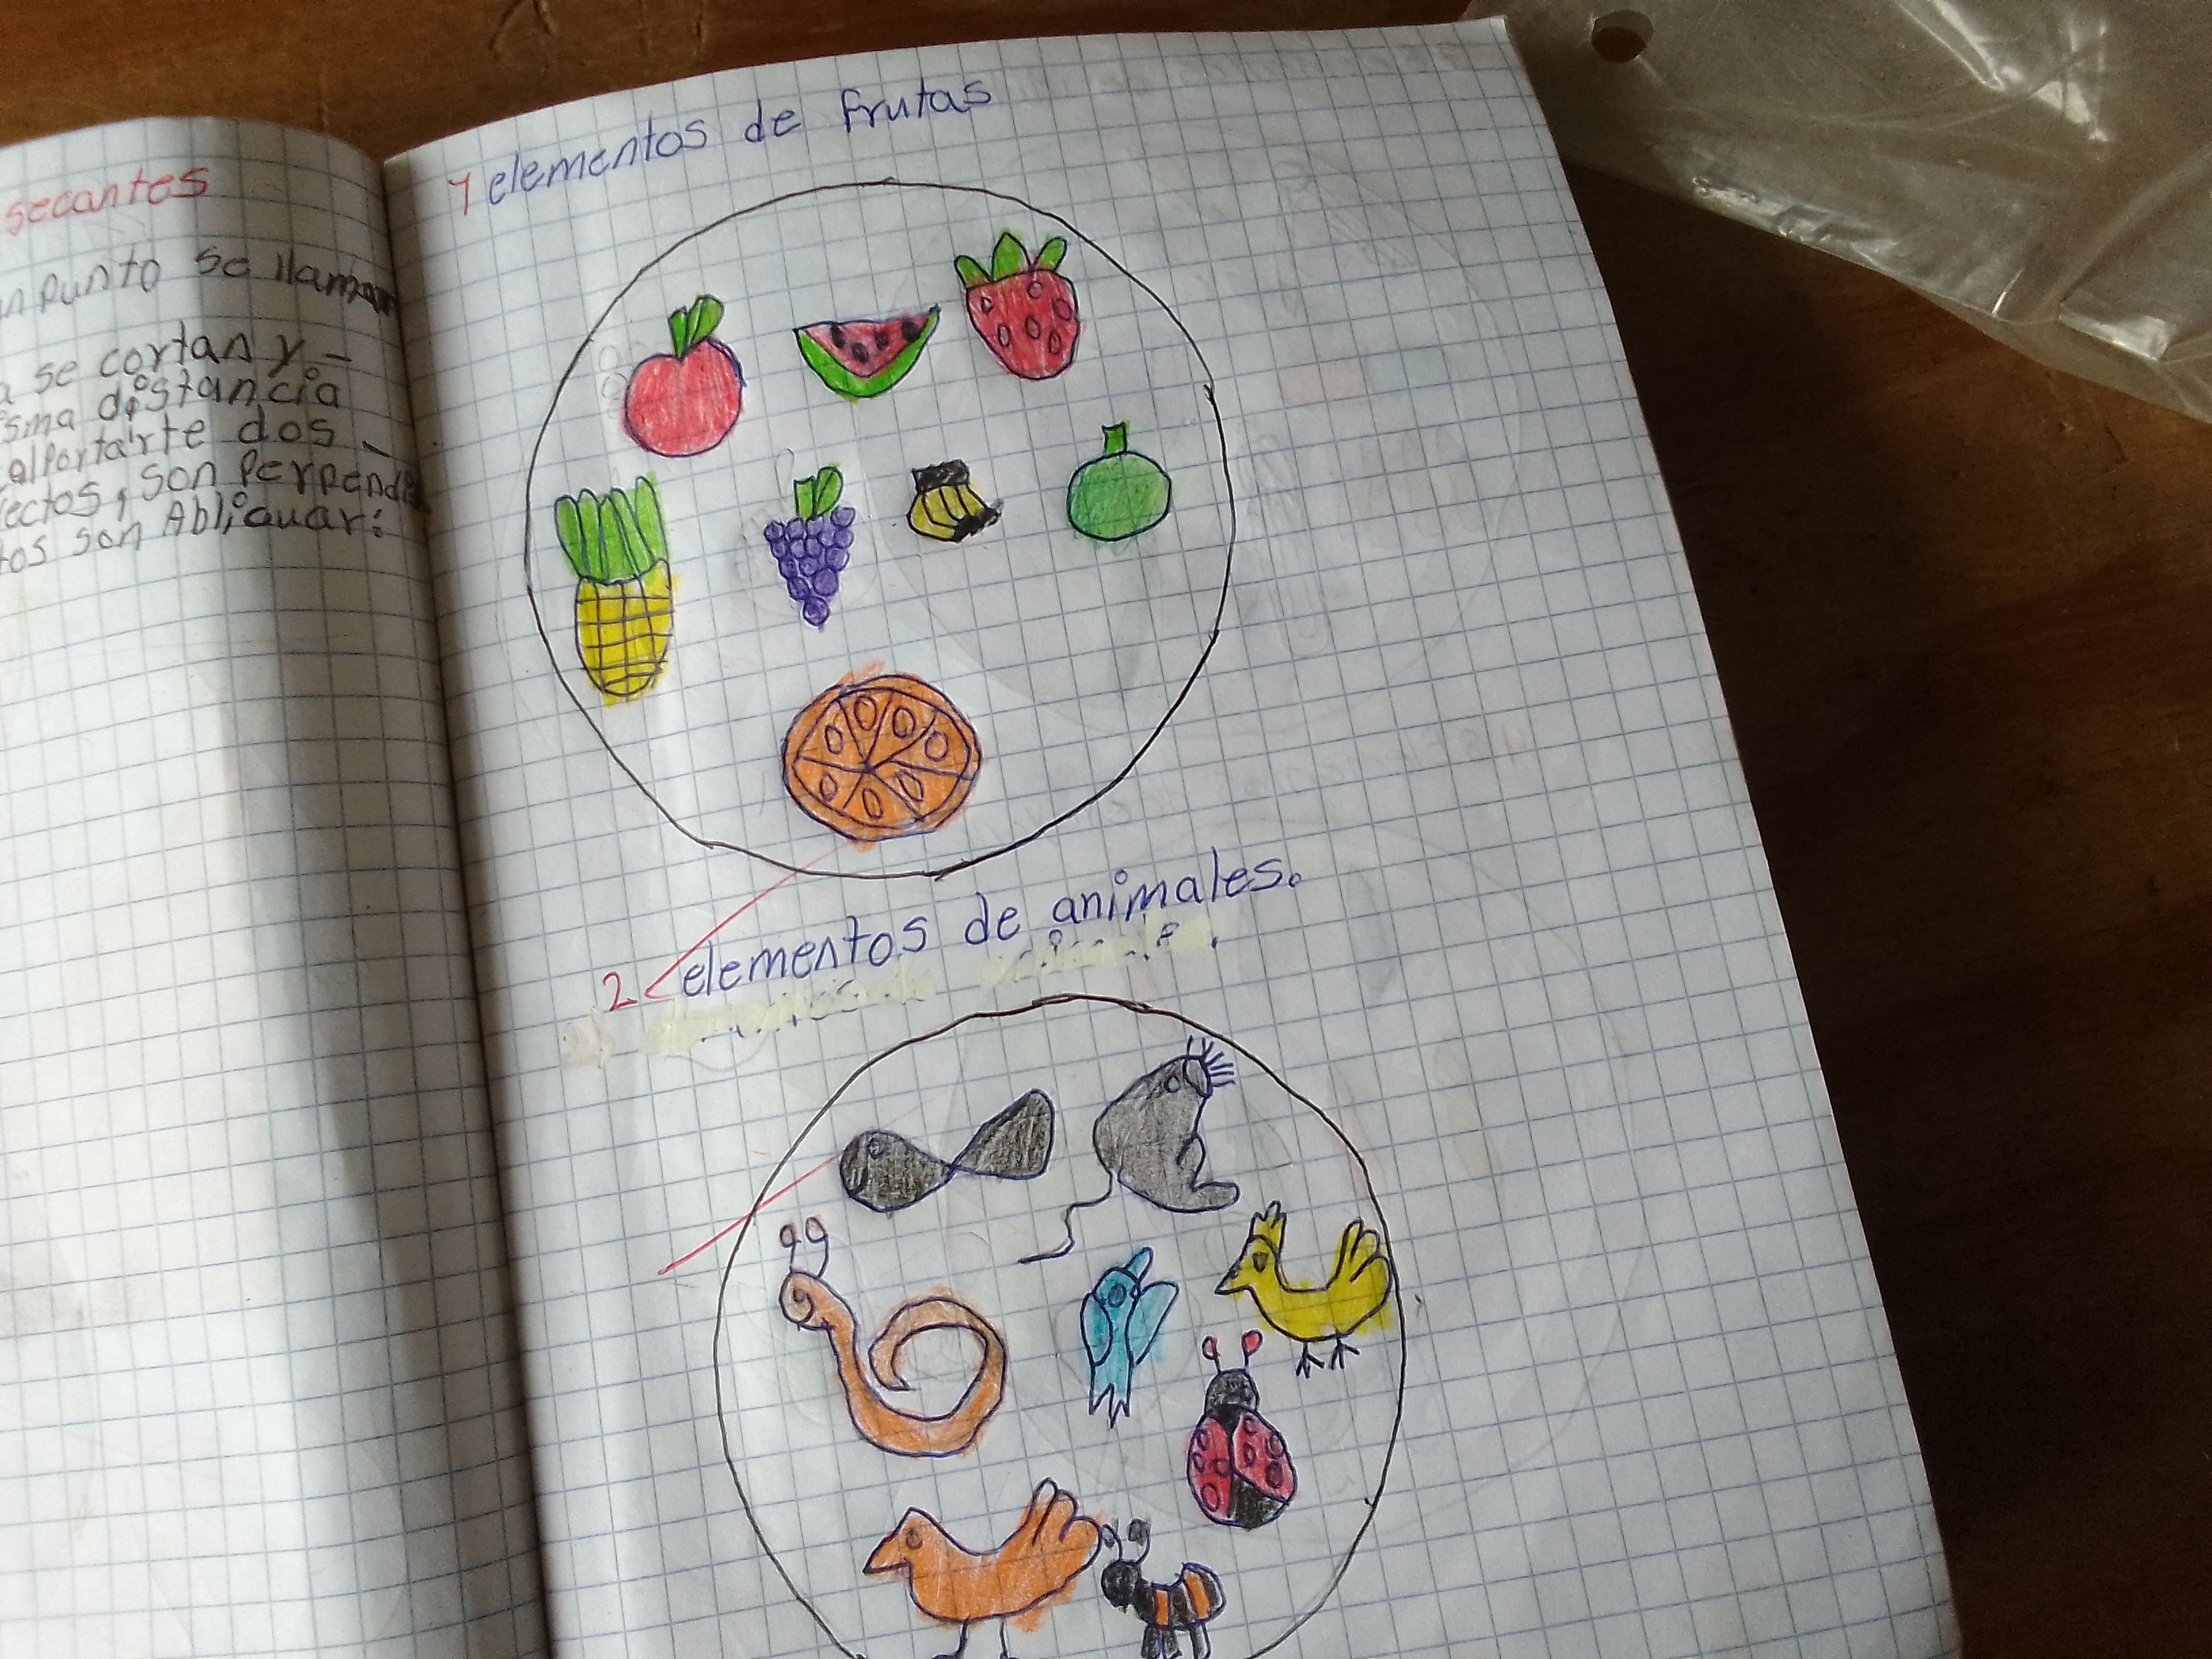 secantes
n punto se llaman
a se cortan y -
isma distancia
alportarte dos -
ectos, son perpendi
tos son Abliquar:
1 elementos de frutas
2 elementos de animales.